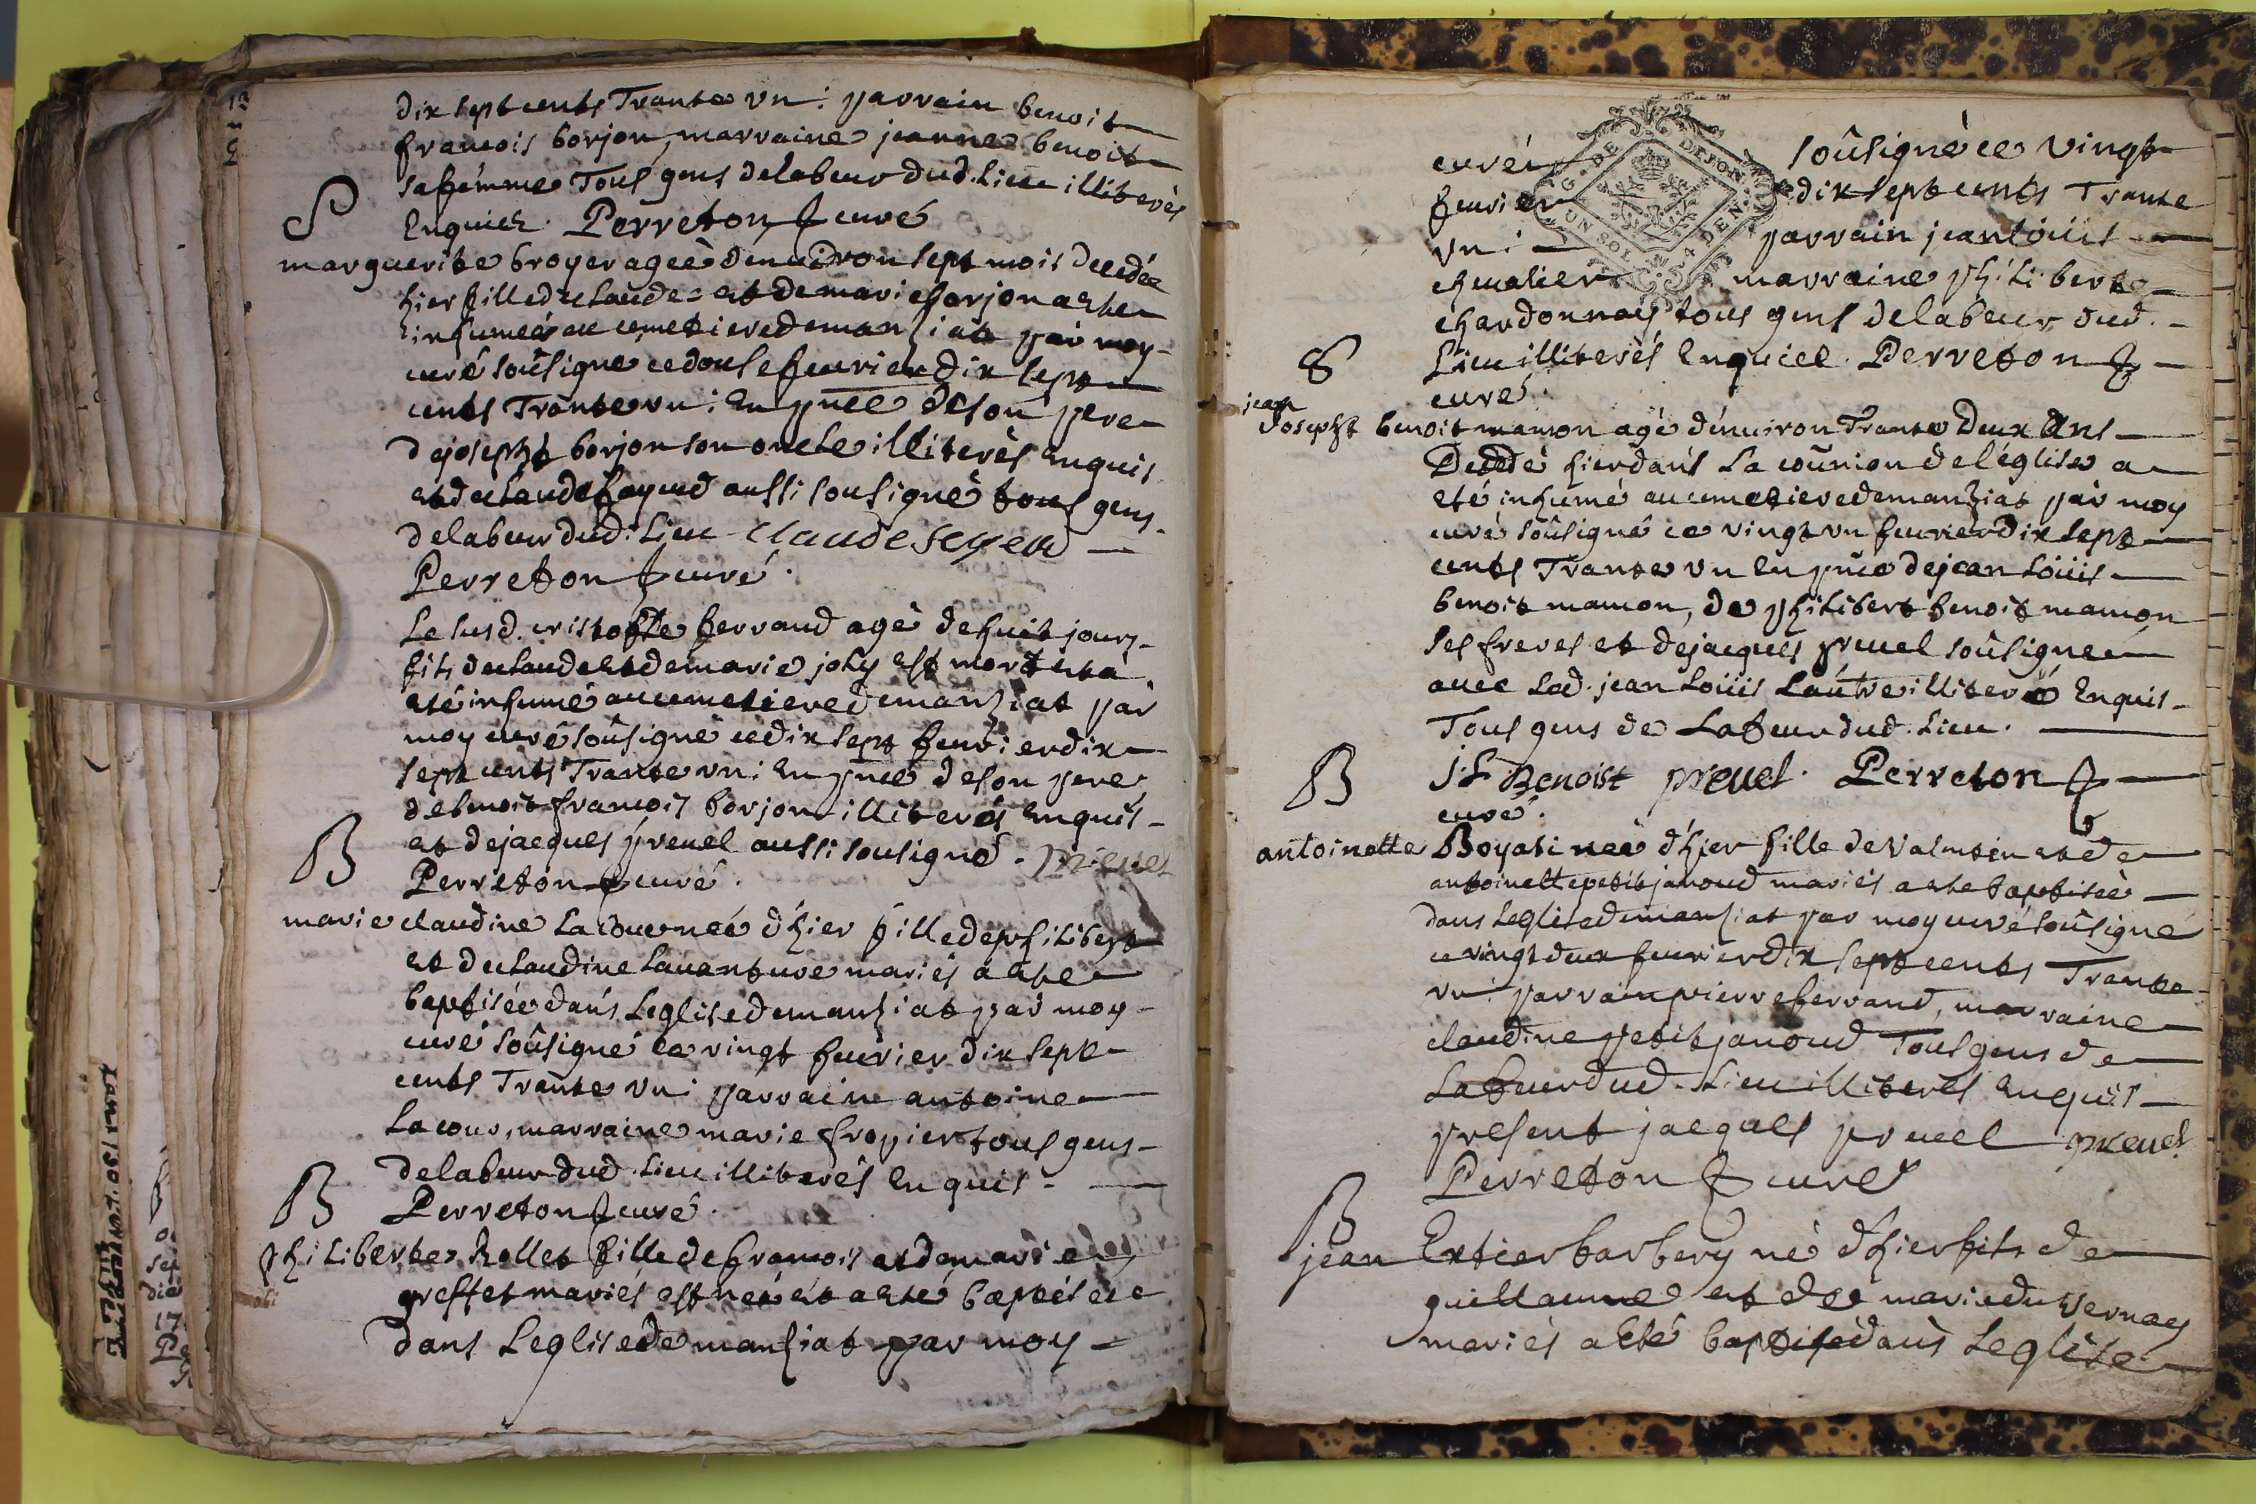 dix sept cents Trante vn : parrain benoit
francois borjon, marraine jeanne benoit
sa femme Tous gens de labeur dud. Lieu illiterés
Enquis. Perreton curé
S
marguerite broyer ageé denuiron sept mois decedée
hier fille de claude et de marie borjon a eté
inhumeé au cemetiere de manziat par moy
curé soûsigné ce douse feurier dix sept
cents Trante vn : En pñce de son pere
de joseph borjon son oncle illiterés enquis
et de claude feyeud aussi sousigné tous gens
de labeur dud. Lieu claude feyeud
Perreton curé.
Le susd. cristofle ferraud agé de huit jours
fils de claude et de marie joly est mort et a
eté inhumé au cemetiere de manziat par
moy curé soûsigné ce dix sept feurier dix
sept cents Trante vn : En pñce de son pere
de benoit francois borjon illiterés enquis
et de jacques preuel aussi sousigné. preuel
Perreton curé.
B
marie claudine La cour neé d'hier fille de philibert
et de claudine Lauanture mariés a eté
baptisée dans Leglise de manziat par moy
curé soûsigné ce vingt feurier dix sept
cents Trante vn : parrain antoine
La cour, marraine marie fropier tous gens
de labeur dud. Lieu illiterés En quis
Perreton curé.
B
philiberte Rollet fille de francois et de marie
greffet mariés est neé et a eté baptiséé
dans Leglise de manziat par moy
curé soûsigné ce vingt
feurier dix sept cents Trante
vn : parrain jean Loüis
cheualier marraine philiberte
chardonnay tous gens de labeur dud.
Lieu illiterés Enquis. Perreton
curé.
G. DE DIJON
UN SOL 4 DEN.
S
jean
Joseph benoit mamon agé d'enuiron Trante Deux Ans
Decedé hier dans La coũnion de l'église a
eté inhumé au cemetiere de manziat par moy
curé soûsigné ce vingt vn feurier dix sept
cents Trante vn En pñce de jean Loüis
benoit mamon, de philibert benoit mamon
ses freres et de jacques preuel soûsigné
auec Led. jean Loüis L'autre illiteré Enquis
Tous gens de Labeur dud. Lieu.
J. L Benoist preuel. Perreton
curé.
B
antoinette Boyat neé d'hier fille de Valentin et de
antoinette petitjanoud mariés a eté baptiseé
dans Leglise de manziat par moy curé soûsigné
ce vingt deux feurier dix sept cents Trante
vn : parrain pierre ferraud, marraine
claudine petitjanoud Tous gens de
Labeur dud. Lieu illiterés Enquis
present jacques preuel preuel
Perreton curé
B
jean Extier barbery né d'hier fils de
guillaume et de marie du Vernay
mariés a eté baptisé dans Leglise